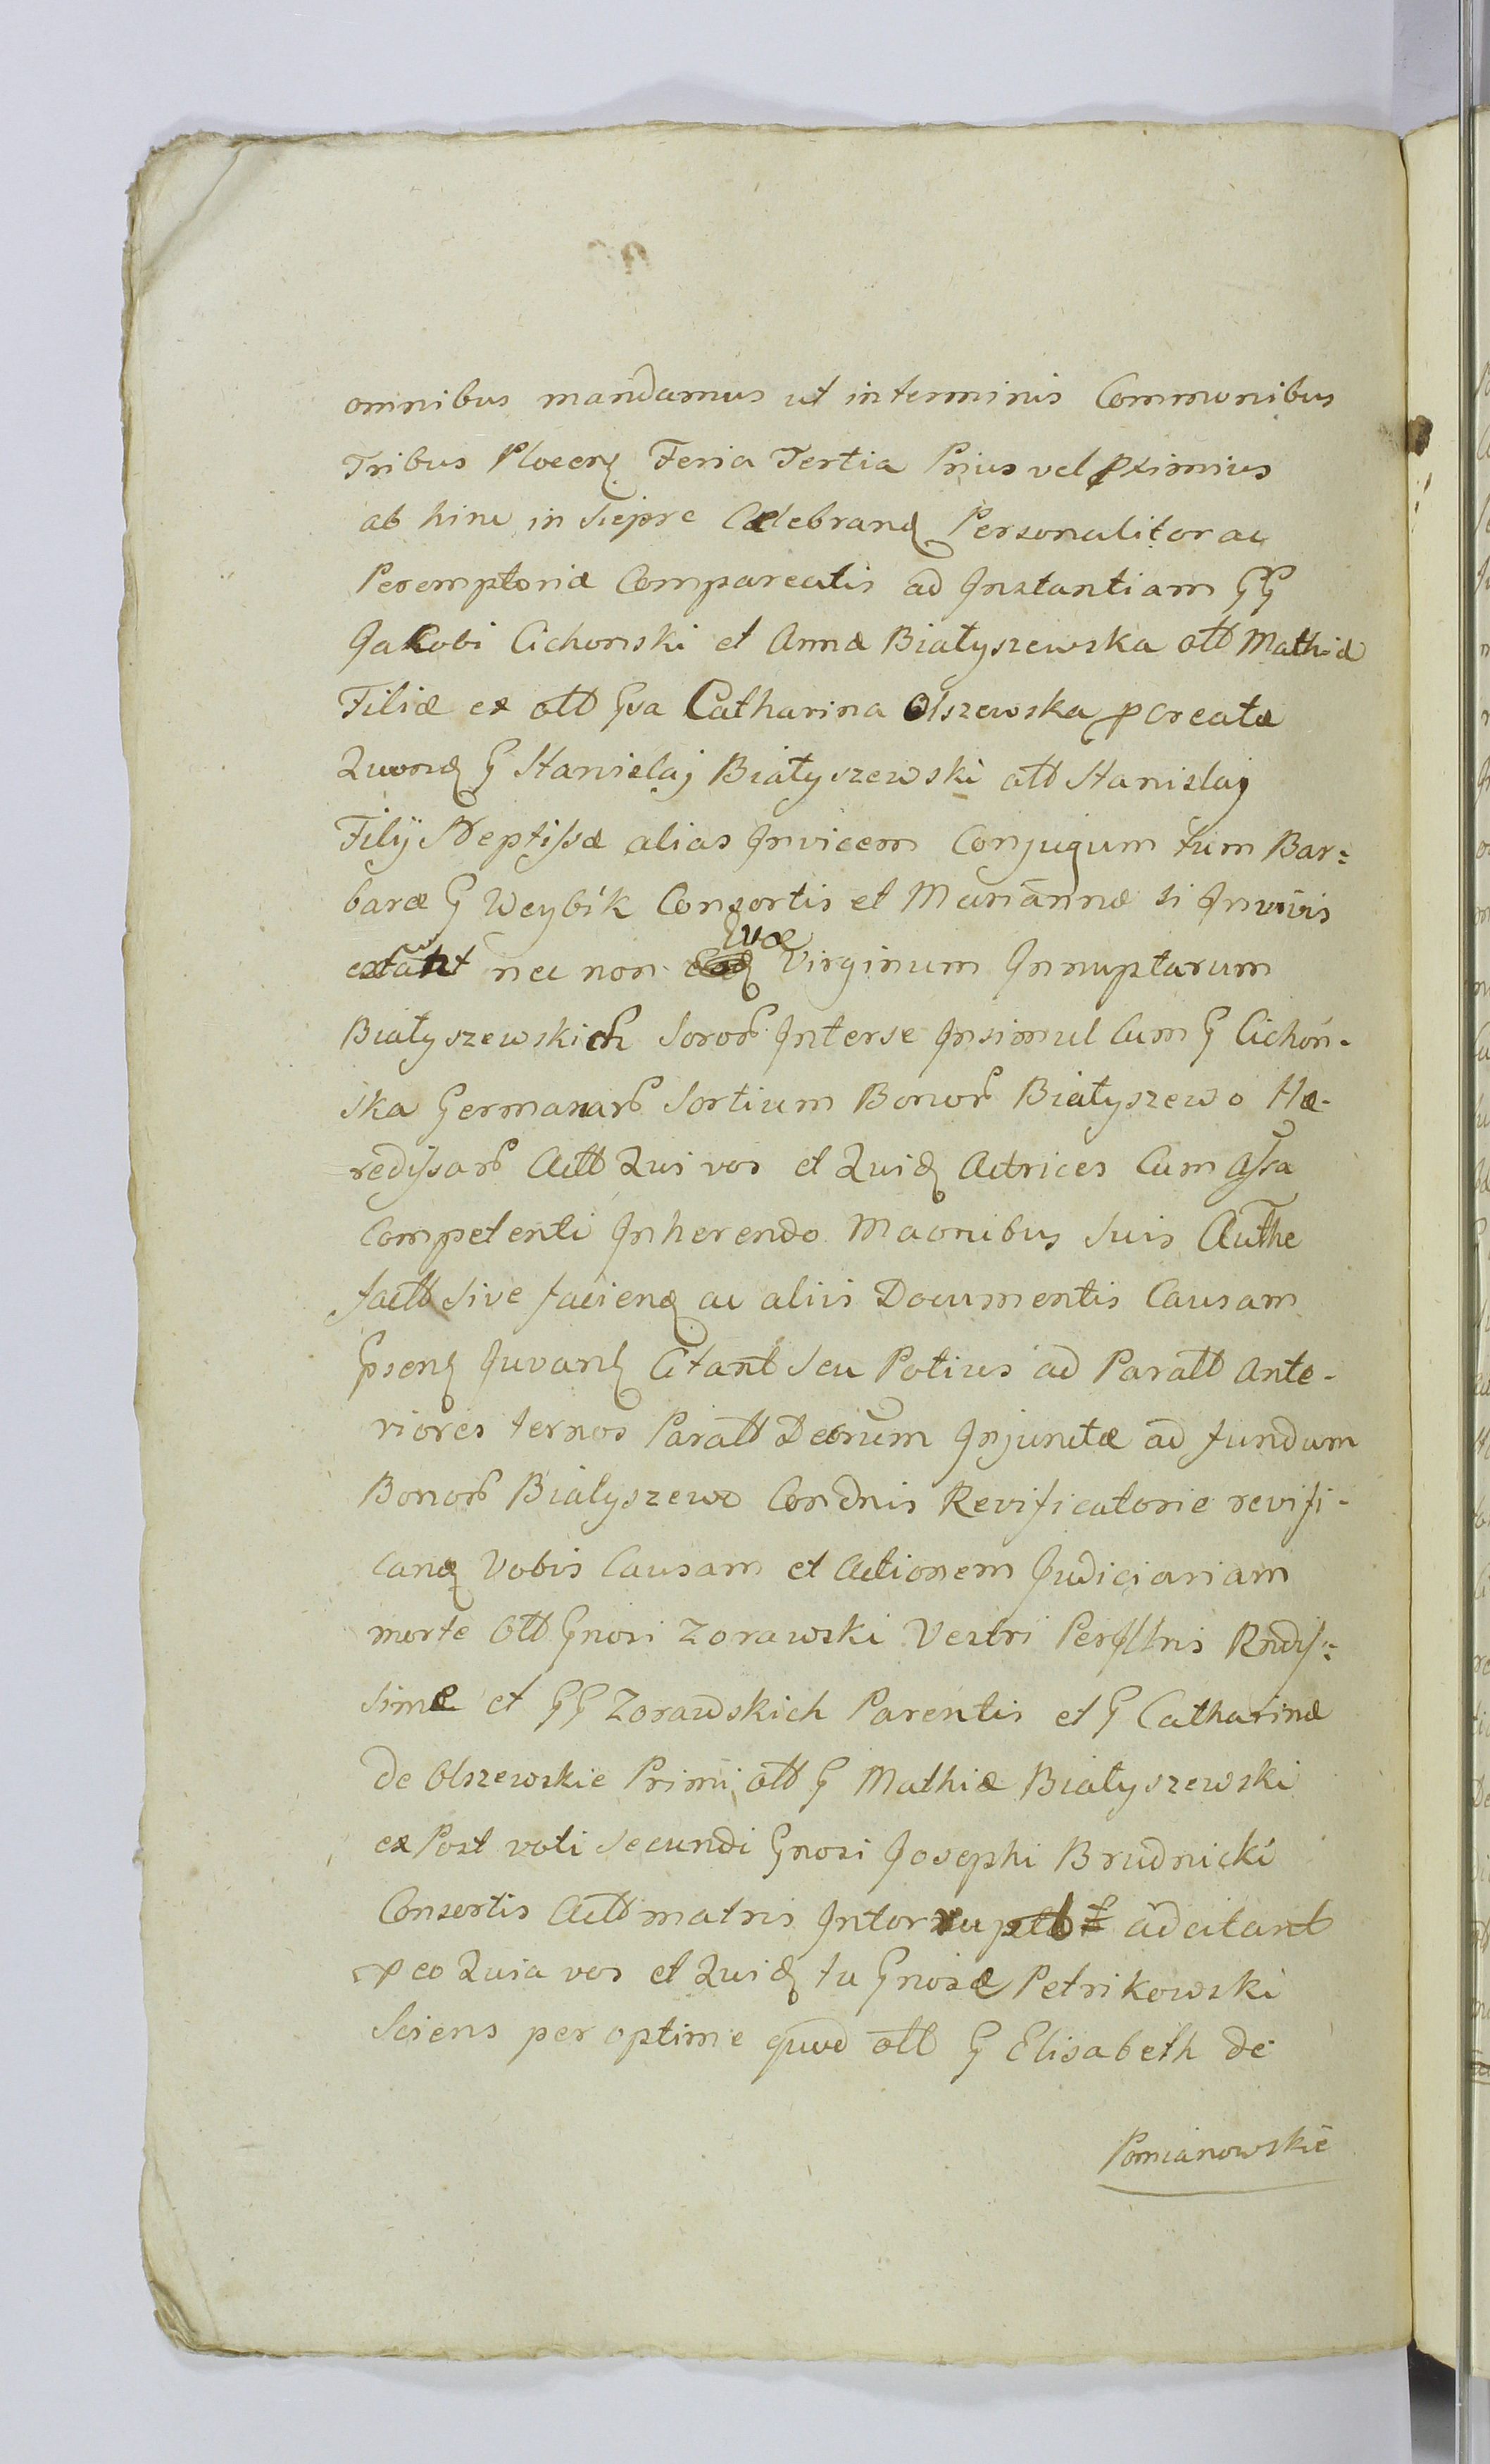 omnibus mandamus ut in terminis Communibus
Tribus Plocen Feria Tertia Prius vel pximius
ab hinc in Siepre Cælebrand Personaliter ac
Peremptoriæ Compareatis ad Instantiam GG
Jacobi Cichonski et Annæ Białyszewska olt Mathiæ
Filiæ ex olt Gsa Catharina Olszewska pcreatæ
Quond G Stanislaj Białyszewski olt Stanislaj
Filij Neptissæ alias Invicem Conjugum tum Bar=
baræ G Weybik Consortis et Mariannæ si In vivis
extant nec non Evæ Virginum Innuptarum
Białyszewskich Soror Interse Insimul Cum G Cichoń-
ska Germanar Sortium Bonor Białyszewo Hæ-
redissar Actt Qui vos et Quid Actrices Cum Assa
Competenti Inherendo Maonibus Suis Authe
factt Sive faciend ac aliis Documentis Causam
Gpsend Juvand Citant Seu Potius ad Paratt Ante-
riores ternos Paratt Deorum Injunctæ ad fundum
Bonor Białyszewo Condnis Revificatorie revifi-
cand Vobis Causam et Actionem Judiciariam
morte Olt Gnosi Zorawski Vestri Perillris Rndis=
sime et GG Zorawskich Parentis et G Catharinæ
de Olszewskie Primi olt G Mathiæ Białyszewski
ex Post voti Secundi Gnosi Josephi Brudnicki
Consortis Actt matris Interrupt adcitant
p eo Quia vos et Quid tu Gnosæ Petrikowski
Sciens per optime quod olt G Elisabeth de
Pomianowskie